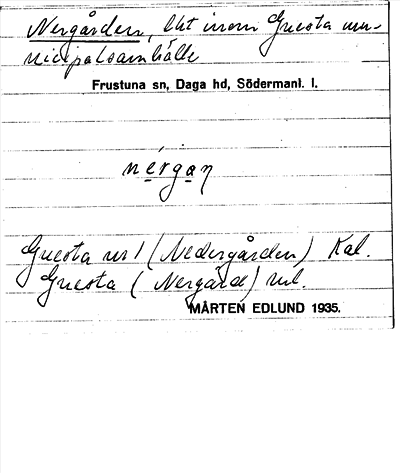 Nergården, lht inom Gnesta mu-
nicipalsamhälle
Frustuna sn, Daga hd, Södermanl. l.
nérgan
Gnesta nr 1 (Nedergården) Kal.
Gnesta (Nergård) ml.
MÅRTEN EDLUND 1935.